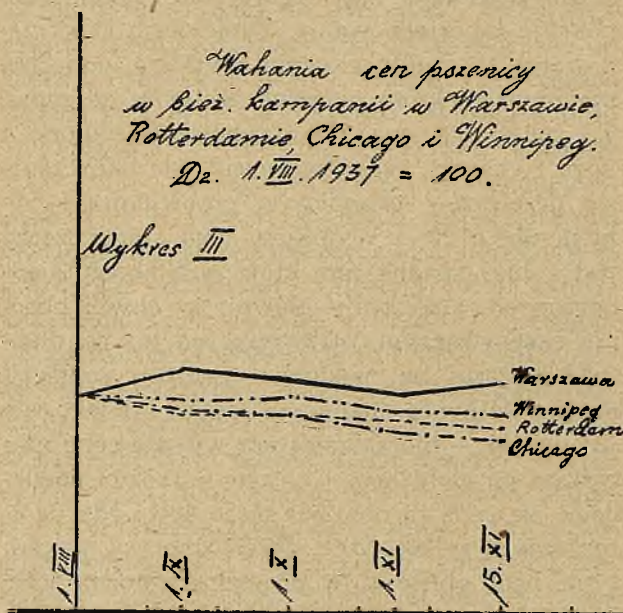 Wahania cen pszenicy
w bież. kampanii w Warszawie,
Rotterdamie, Chicago i Winnipeg.
Dz. 1.VIII.1937 = 100.
Wykres III
Warszawa
Winnipeg
Rotterdam
Chicago
1.VIII
1.IX
1.X
1.XI
15.XI